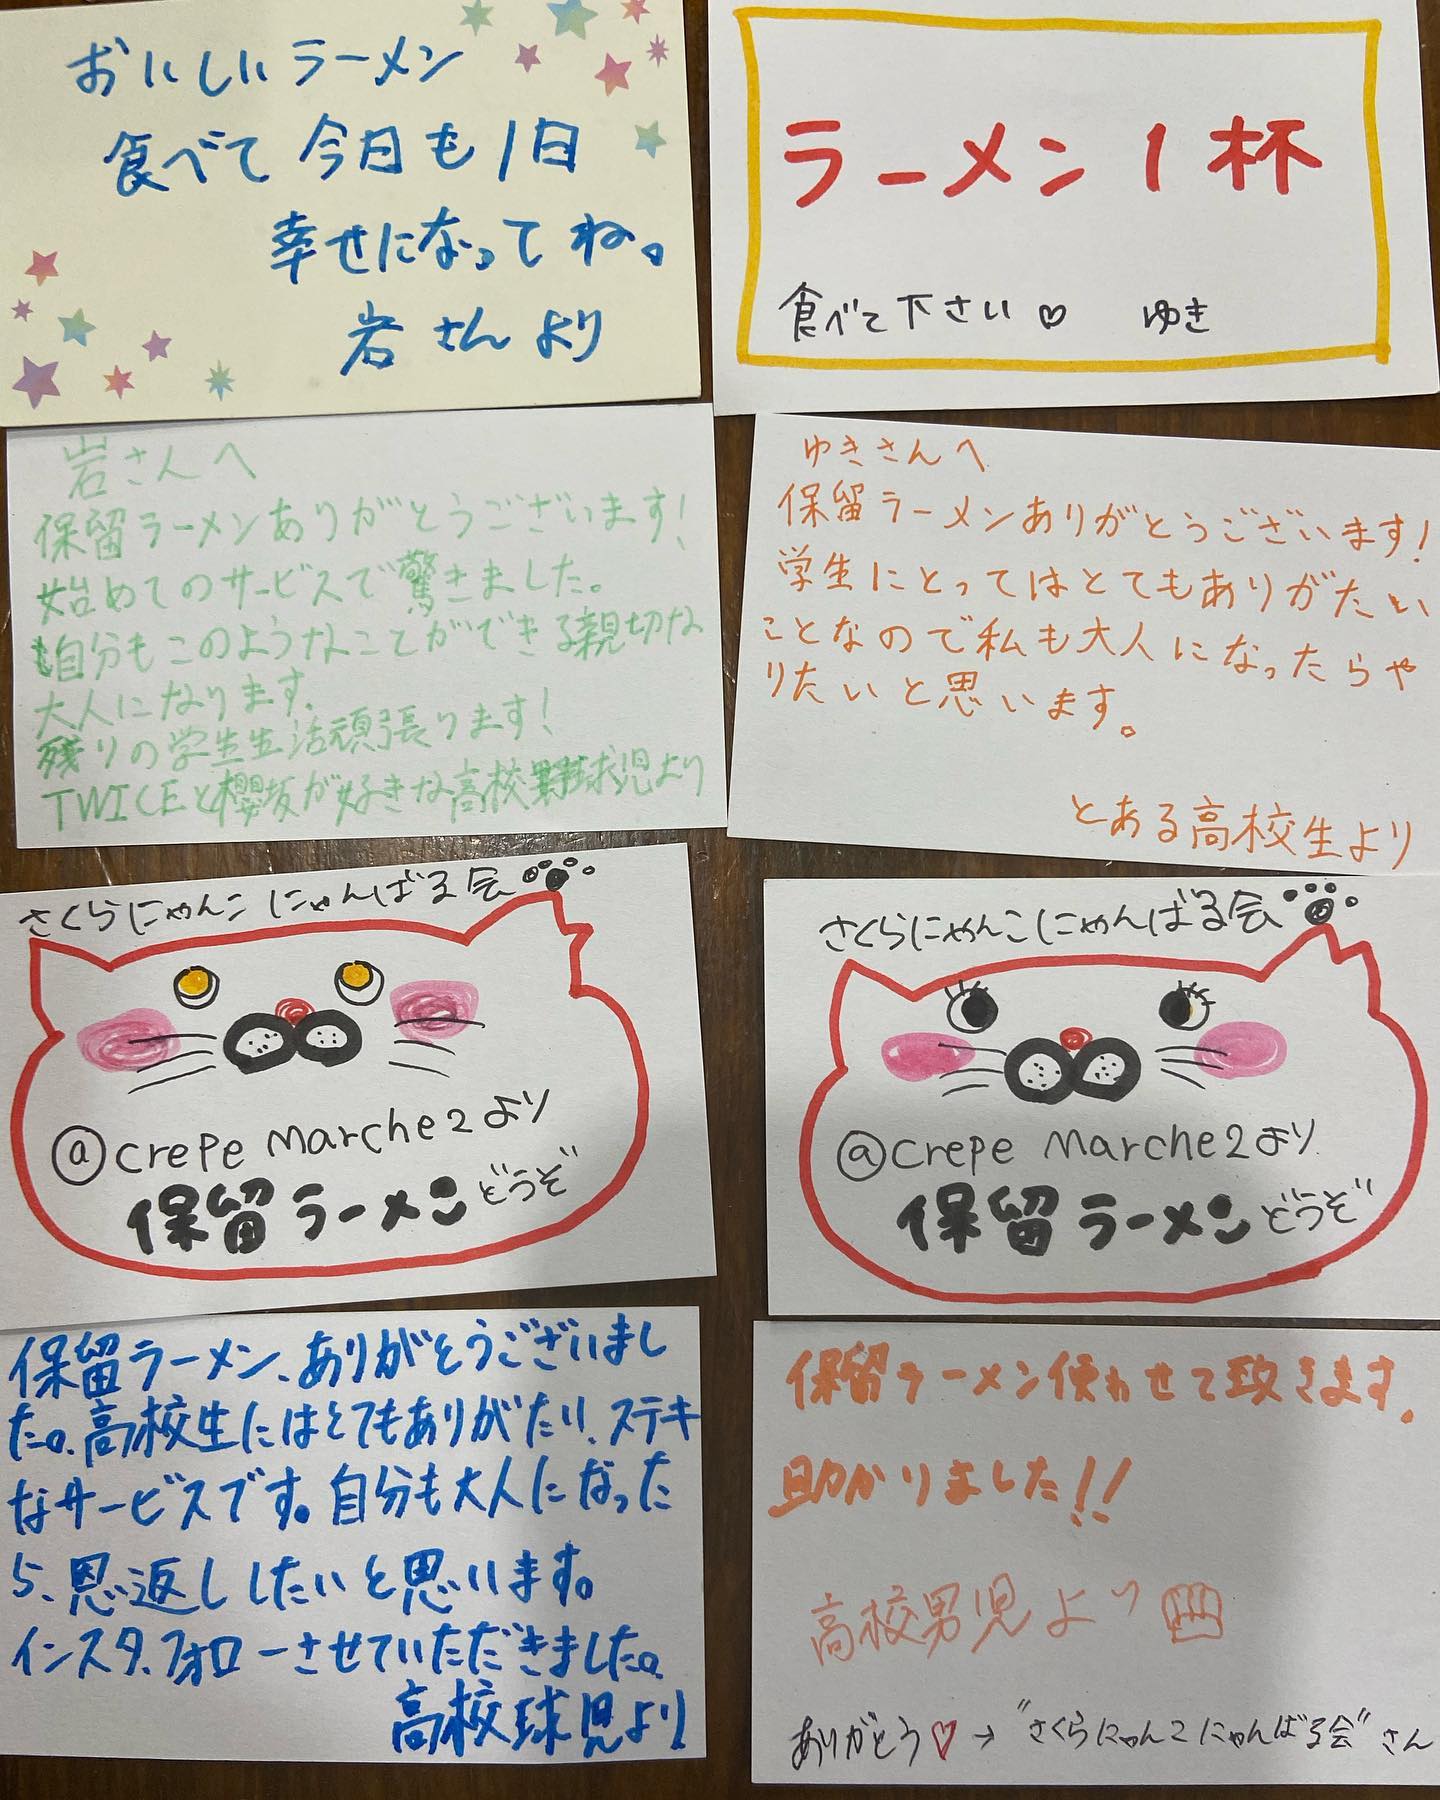 おいしいラーメン
食べて今日も1日
幸せになってね。
岩さんより
ラーメン1杯
食べて下さい♡ ゆき
岩さんへ
保留ラーメンありがとうございます!
始めてのサービスで驚きました。
自分もこのようなことができる親切な
大人になります.
残りの学生生活頑張ります!
TWICEと櫻坂が好きな高校野球児より
ゆきさんへ
保留ラーメンありがとうございます!
学生にとってはとてもありがたい
ことなので私も大人になったらや
りたいと思います。
とある高校生より
さくらにゃんこにゃんばる会
@crepe marche2より
保留ラーメンどうぞ
さくらにゃんこにゃんばる会
@crepe marche2より
保留ラーメンどうぞ
保留ラーメン、ありがとうございまし
た。高校生にはとてもありがたい、ステキ
なサービスです。自分も大人になった
ら、恩返ししたいと思います。
インスタ、フォローさせていただきました。
高校球児より
保留ラーメン使わせて致きます.
助かりました!!
高校男児より
ありがとう♡→"さくらにゃんこにゃんばる会"さん